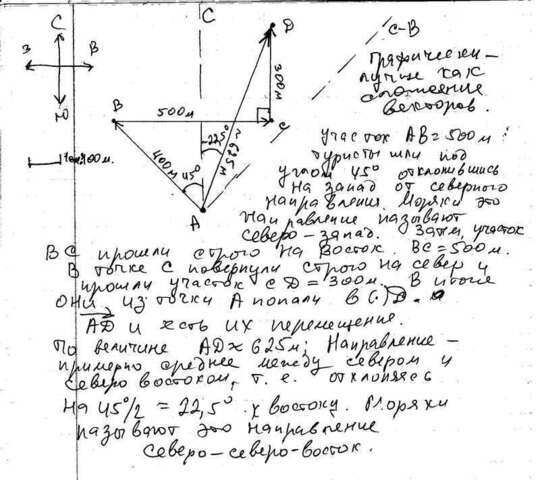 С
З
В
Ю
С
D
С-В
Графически -
лучше как
сложение
векторов.
300м
B
500м
C
~22,5°
~625м
400м
45°
A
участок АВ = 500м
туристы шли под
углом 45° отклонившись
на запад от северного
направления. Моряки это
направление называют
северо-запад. Затем, участок
ВС прошли строго на Восток. ВС = 500м.
В точке С повернули строго на север и
прошли участок СD = 300м. В итоге
они из точки А попали в (·)D.
AD и есть их перемещение.
По величине AD ≈ 625м; Направление -
примерно среднее между севером и
северо востоком, т.е. отклоняясь
на 45°/2 = 22,5° к востоку. Моряки
называют это направление
Северо-северо-восток.